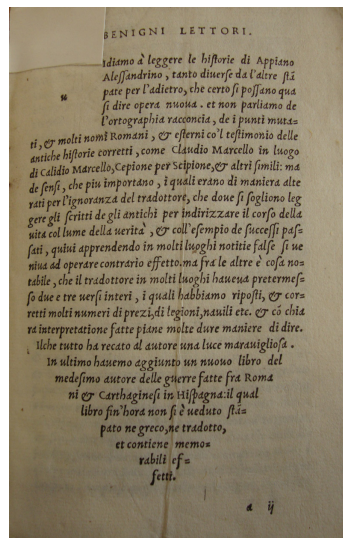 BENIGNI LETTORI.
diamo à leggere le hiſtorie di Appiano
Aleſſandrino, tanto diuerse da l'altre ſtā
pate per l'adietro, che certo ſi poſſano qua
ſi dire opera nuoua. et non parliamo de
l'ortographia racconcia, de i punti muta=
ti, & molti nomi Romani, & eſterni co'l teſtimonio delle
antiche hiſtorie corretti, come Claudio Marcello in luogo
di Calidio Marcello, Cepione per Scipione, & altri ſimili: ma
de ſenſi, che piu importano, i quali erano di maniera alte
rati per l'ignoranza del tradottore, che doue ſi ſogliono leg
gere gli ſcritti de gli antichi per indirizzare il corſo della
uita col lume della uerità, & coll'eſempio de ſucceſſi paſ=
ſati, quiui apprendendo in molti luoghi notitie falſe ſi ue
niua ad operare contrario effetto. ma fra le altre è coſa no=
tabile, che il tradottore in molti luoghi haueua pretermeſ=
ſo due e tre uerſi interi, i quali habbiamo ripoſti, & cor=
retti molti numeri di prezi, di legioni, nauili etc. & cō chia
ra interpretatione fatte piane molte dure maniere di dire.
Ilche tutto ha recato al autore una luce marauiglioſa.
In ultimo hauemo aggiunto un nuouo libro del
medeſimo autore delle guerre fatte fra Roma
ni & Carthagineſi in Hiſpagna: il qual
libro fin'hora non ſi è ueduto ſtā=
pato ne greco, ne tradotto,
et contiene memo=
rabili ef=
fetti.
a ij